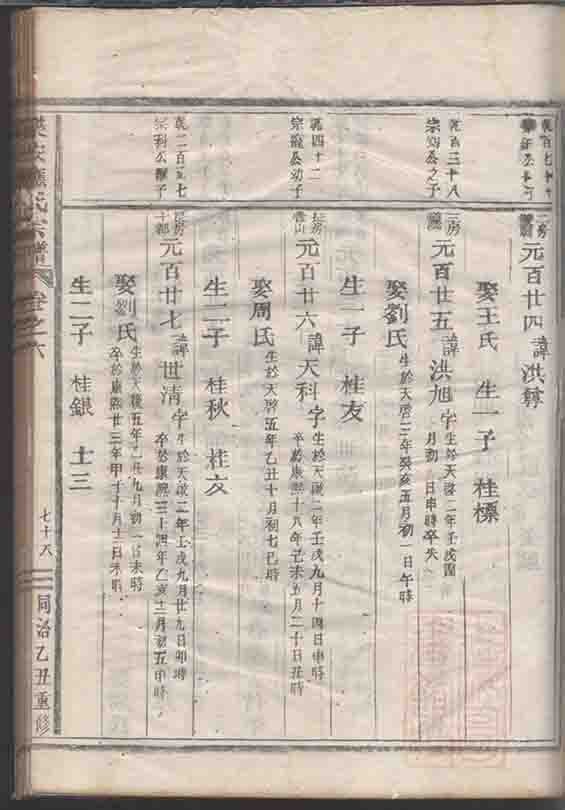 二房
元百廿四 諱 洪
娶王氏 生一子 桂標
乾百三十八
宗 公之子
三房
元百廿五 諱 洪旭 字 生於天啓二年壬戌
月初一日申時卒失
娶劉氏 生於天啓三年癸亥五月初一日午時
生一子 桂友
乾四十二
宗 公幼子
長房
元百廿六 諱 天科 字 生於天啟二年壬戌九月十四日申時
卒於康熙十八年己未五月二十日丑時
娶周氏 生於天啓五年乙丑十月初七巳時
生二子 桂秋 桂友
乾二百五七
宗 公 子
長房
元百廿七 諱 世清 字 生於天啟二年壬戌九月廿九日卯時
卒於康熙三十四年乙亥十二月初五申時
娶劉氏 生於天啟五年乙丑九月初一日未時
卒於康熙廿三年甲子十月十二日未時
生二子 桂銀 士三
氏宗譜 卷之六 七十八 同治乙丑重修